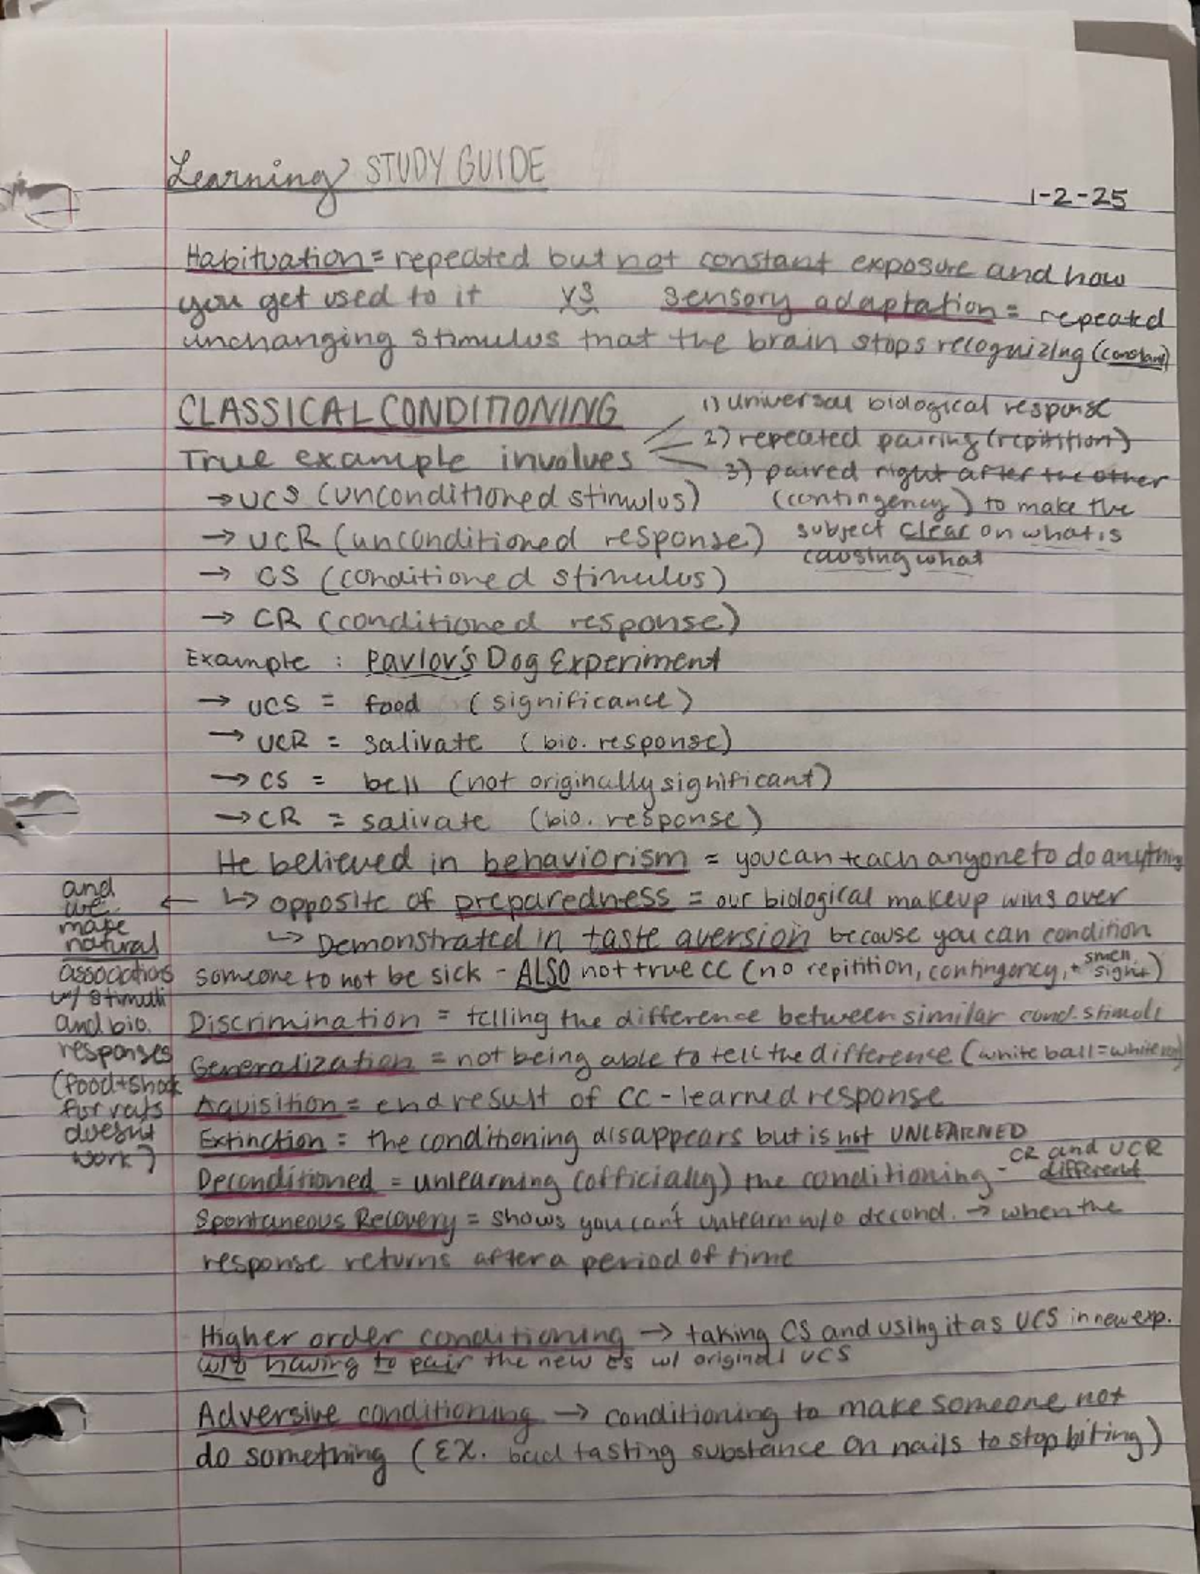 Learning STUDY GUIDE
1-2-25
Habituation = repeated but not constant exposure and how
you get used to it VS sensory adaptation = repeated
unchanging stimulus that the brain stops recognizing (constant)
CLASSICAL CONDITIONING
1) universal biological response
True example involves
2) repeated pairing (repitition)
3) paired right after the other
(contingency) to make the
subject clear on what is
causing what
→ UCS (unconditioned stimulus)
→ UCR (unconditioned response)
→ CS (conditioned stimulus)
→ CR (conditioned response)
Example : Pavlov's Dog Experiment
→ UCS = food (significance)
→ UCR = salivate (bio. response)
→ CS = bell (not originally significant)
→ CR = salivate (bio. response)
He believed in behaviorism = you can teach anyone to do anything
↳ opposite of preparedness = our biological makeup wins over
↳ Demonstrated in taste aversion because you can condition
someone to not be sick - ALSO not true CC (no repitition, contingency, + smell sight)
and
we
make
natural
associations
w/ stimuli
and bio.
responses
(food + shock
for rats
doesnt
work)
Discrimination = telling the difference between similar cond. stimuli
Generalization = not being able to tell the difference (white ball = white
Aquisition = end result of CC - learned response
Extinction = the conditioning disappears but is not UNLEARNED
Deconditioned = unlearning (officially) the conditioning - CR and UCR
different
Spontaneous Recovery = shows you can't unlearn w/o decond. → when the
response returns after a period of time
Higher order conditioning → taking CS and using it as UCS in new exp.
w/o having to pair the new CS w/ original UCS
Adversive conditioning → conditioning to make someone not
do something (EX. bad tasting substance on nails to stop biting)